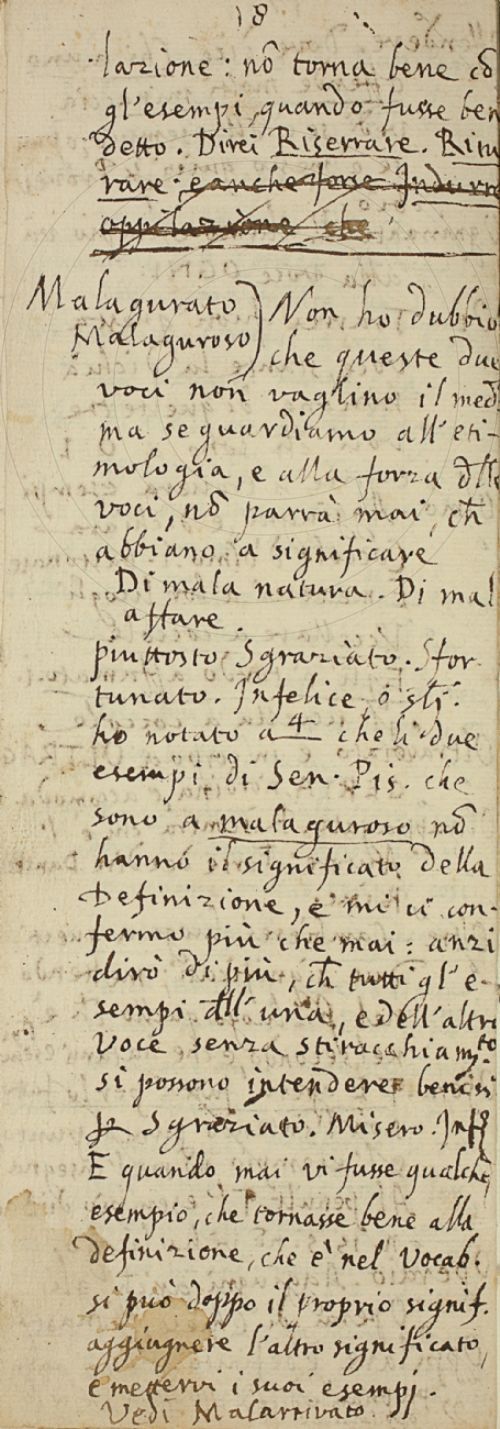 18
lazione: nō torna bene cō
gl'esempi, quando fusse ben
detto. Direi Riserrare. Ritu
rare. e anche forse Indurre
oppilazione che
Malagurato
Malaguroso) Non ho dubbio
che queste due
voci non vaglino il med.
ma se guardiamo all'eti-
mologia, e alla forza dlle
voci, nō parrà mai, ch̄
abbiano a significare
Di mala natura. Di mal
affare.
piuttosto Sgraziato. Sfor
tunato. Infelice, ō
ho notato a 4 che li due
esempi di Sen. Pis. che
sono a malaguroso nō
hanno il significato della
Definizione, e mi ci con-
fermo più che mai: anzi
dirò di più, ch̄ tutti gl'e-
sempi dll'una, e dell'altra
voce senza stiracchiamto
si possono intendere benissi
Sgraziato. Misero. Inf
E quando mai vi fusse qualche
esempio, che tornasse bene alla
definizione, che è nel Vocab.
si può doppo il proprio signif.
aggiugnere l'altro significato,
e mettervi i suoi esempj.
Vedi Malarrivato